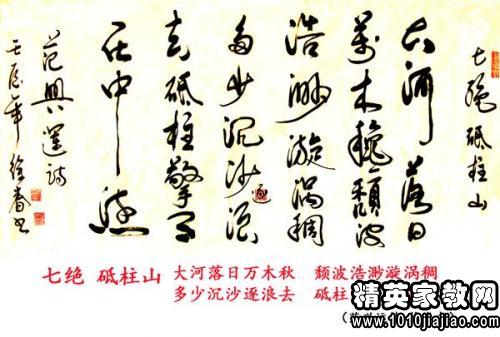 七绝 砥柱山
大河落日
萬木穐頹波
浩渺漩涡稠
多少沉沙逐浪
去砥柱擎天
中
范興運诗
壬辰年 徐春书
七绝 砥柱山 大河落日万木秋 颓波浩渺漩涡稠
多少沉沙逐浪去 砥柱
精英家教网
www.1010jiajiao.com